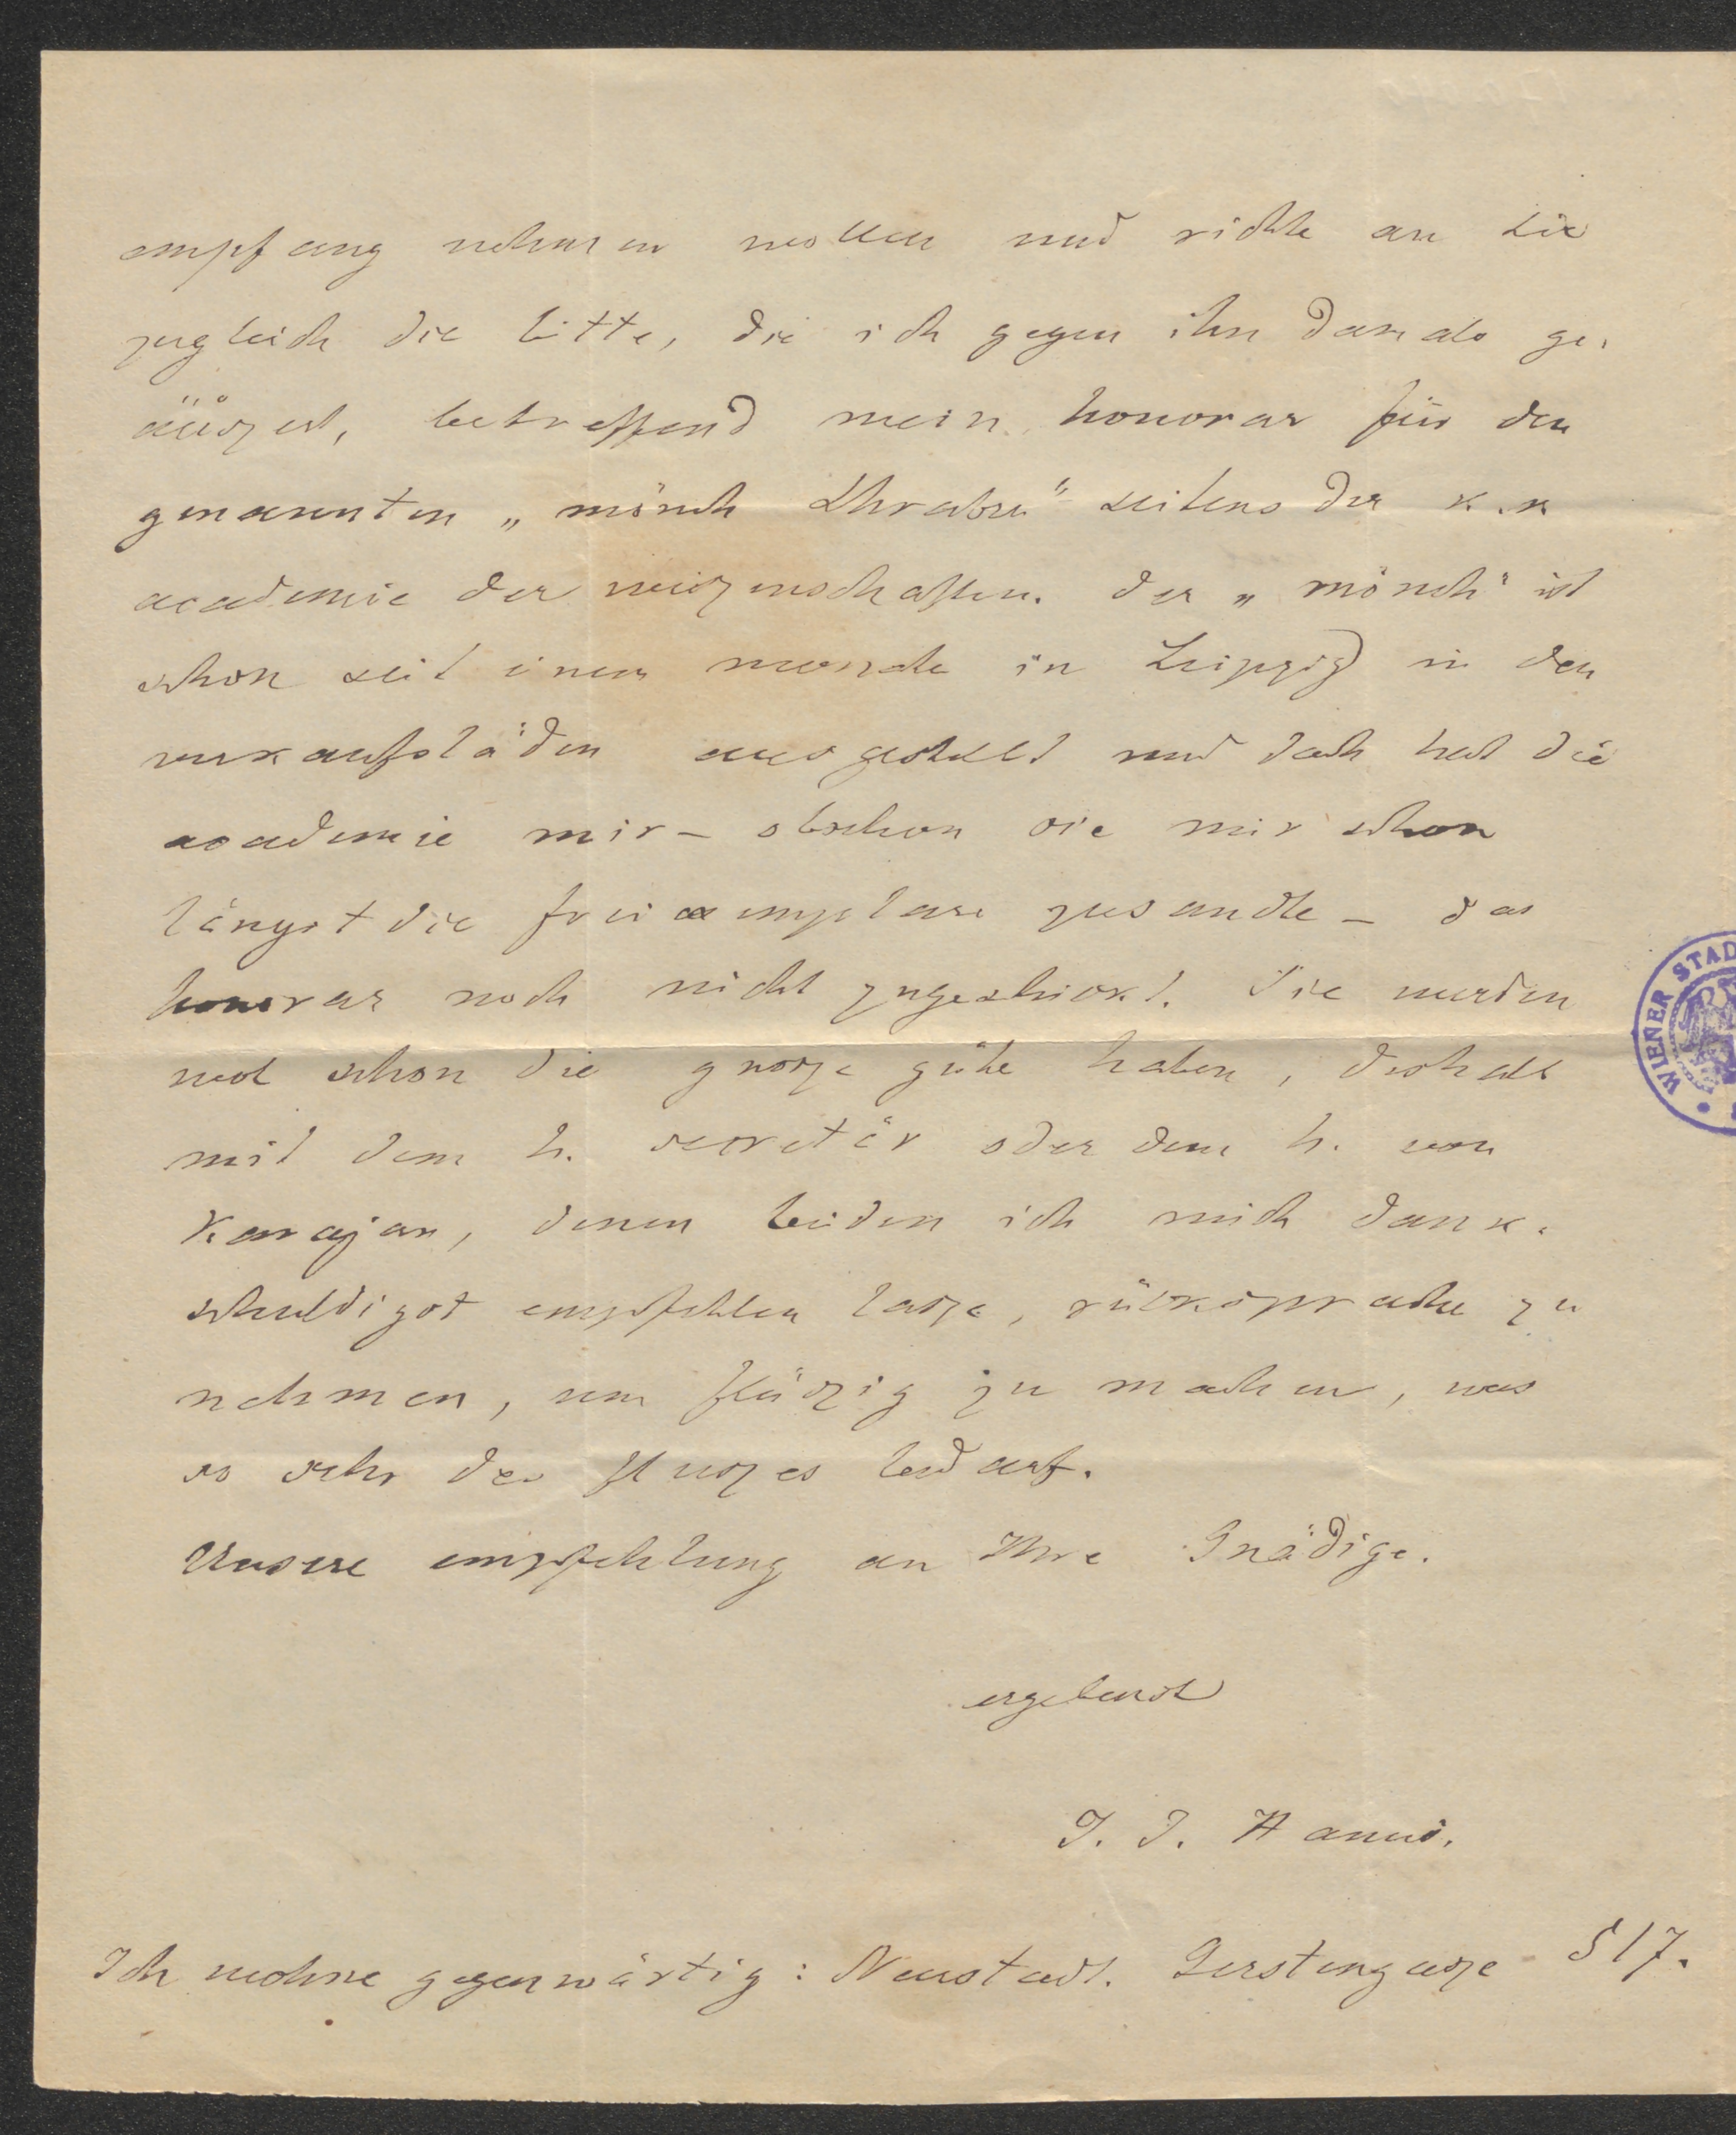 empfang nehmen wollen und richte an Sie
zugleich die bitte, die ich gegen ihn damals ge-
äüszert, betreffend mein honorar für den
genannten „mönch Chrabru" seitens der k. k
academie der wiszenschaften. der „mönch" ist
schon seit einem monate in Leipzig in den
verkaufsläden ausgestellt und doch hat die
academie mir – obschon sie mir schon
längst die freiexemplare zusandte – das
honorar noch nicht zugeschickt. Sie werden
wol schon die grosze güte haben, deshalb
mit dem h. secretär oder dem h. von
Karajan, denen beiden ich mich dank-
schuldigst empfehlen lasze, rücksprache zu
nehmen, um flüszig zu machen, was
so sehr des fluszes bedarf.
Unsere empfehlung an Ihre Gnädige.
ergebenst
I. J. Hanuš.
Ich wohne gegenwärtig: Neustadt. Gerstengasze 517.
WIENER STAD